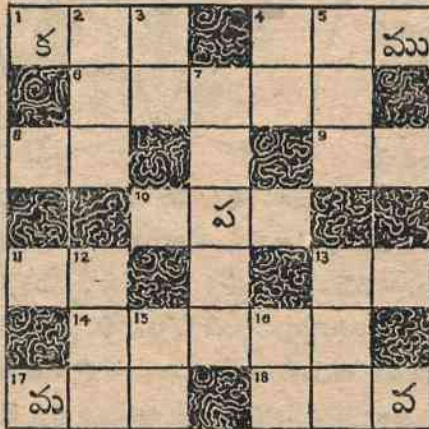 1 క 2 3 4 5 ము
6 7
8 9
10 ప
11 12 13
14 15 16
17 మ 18 వ